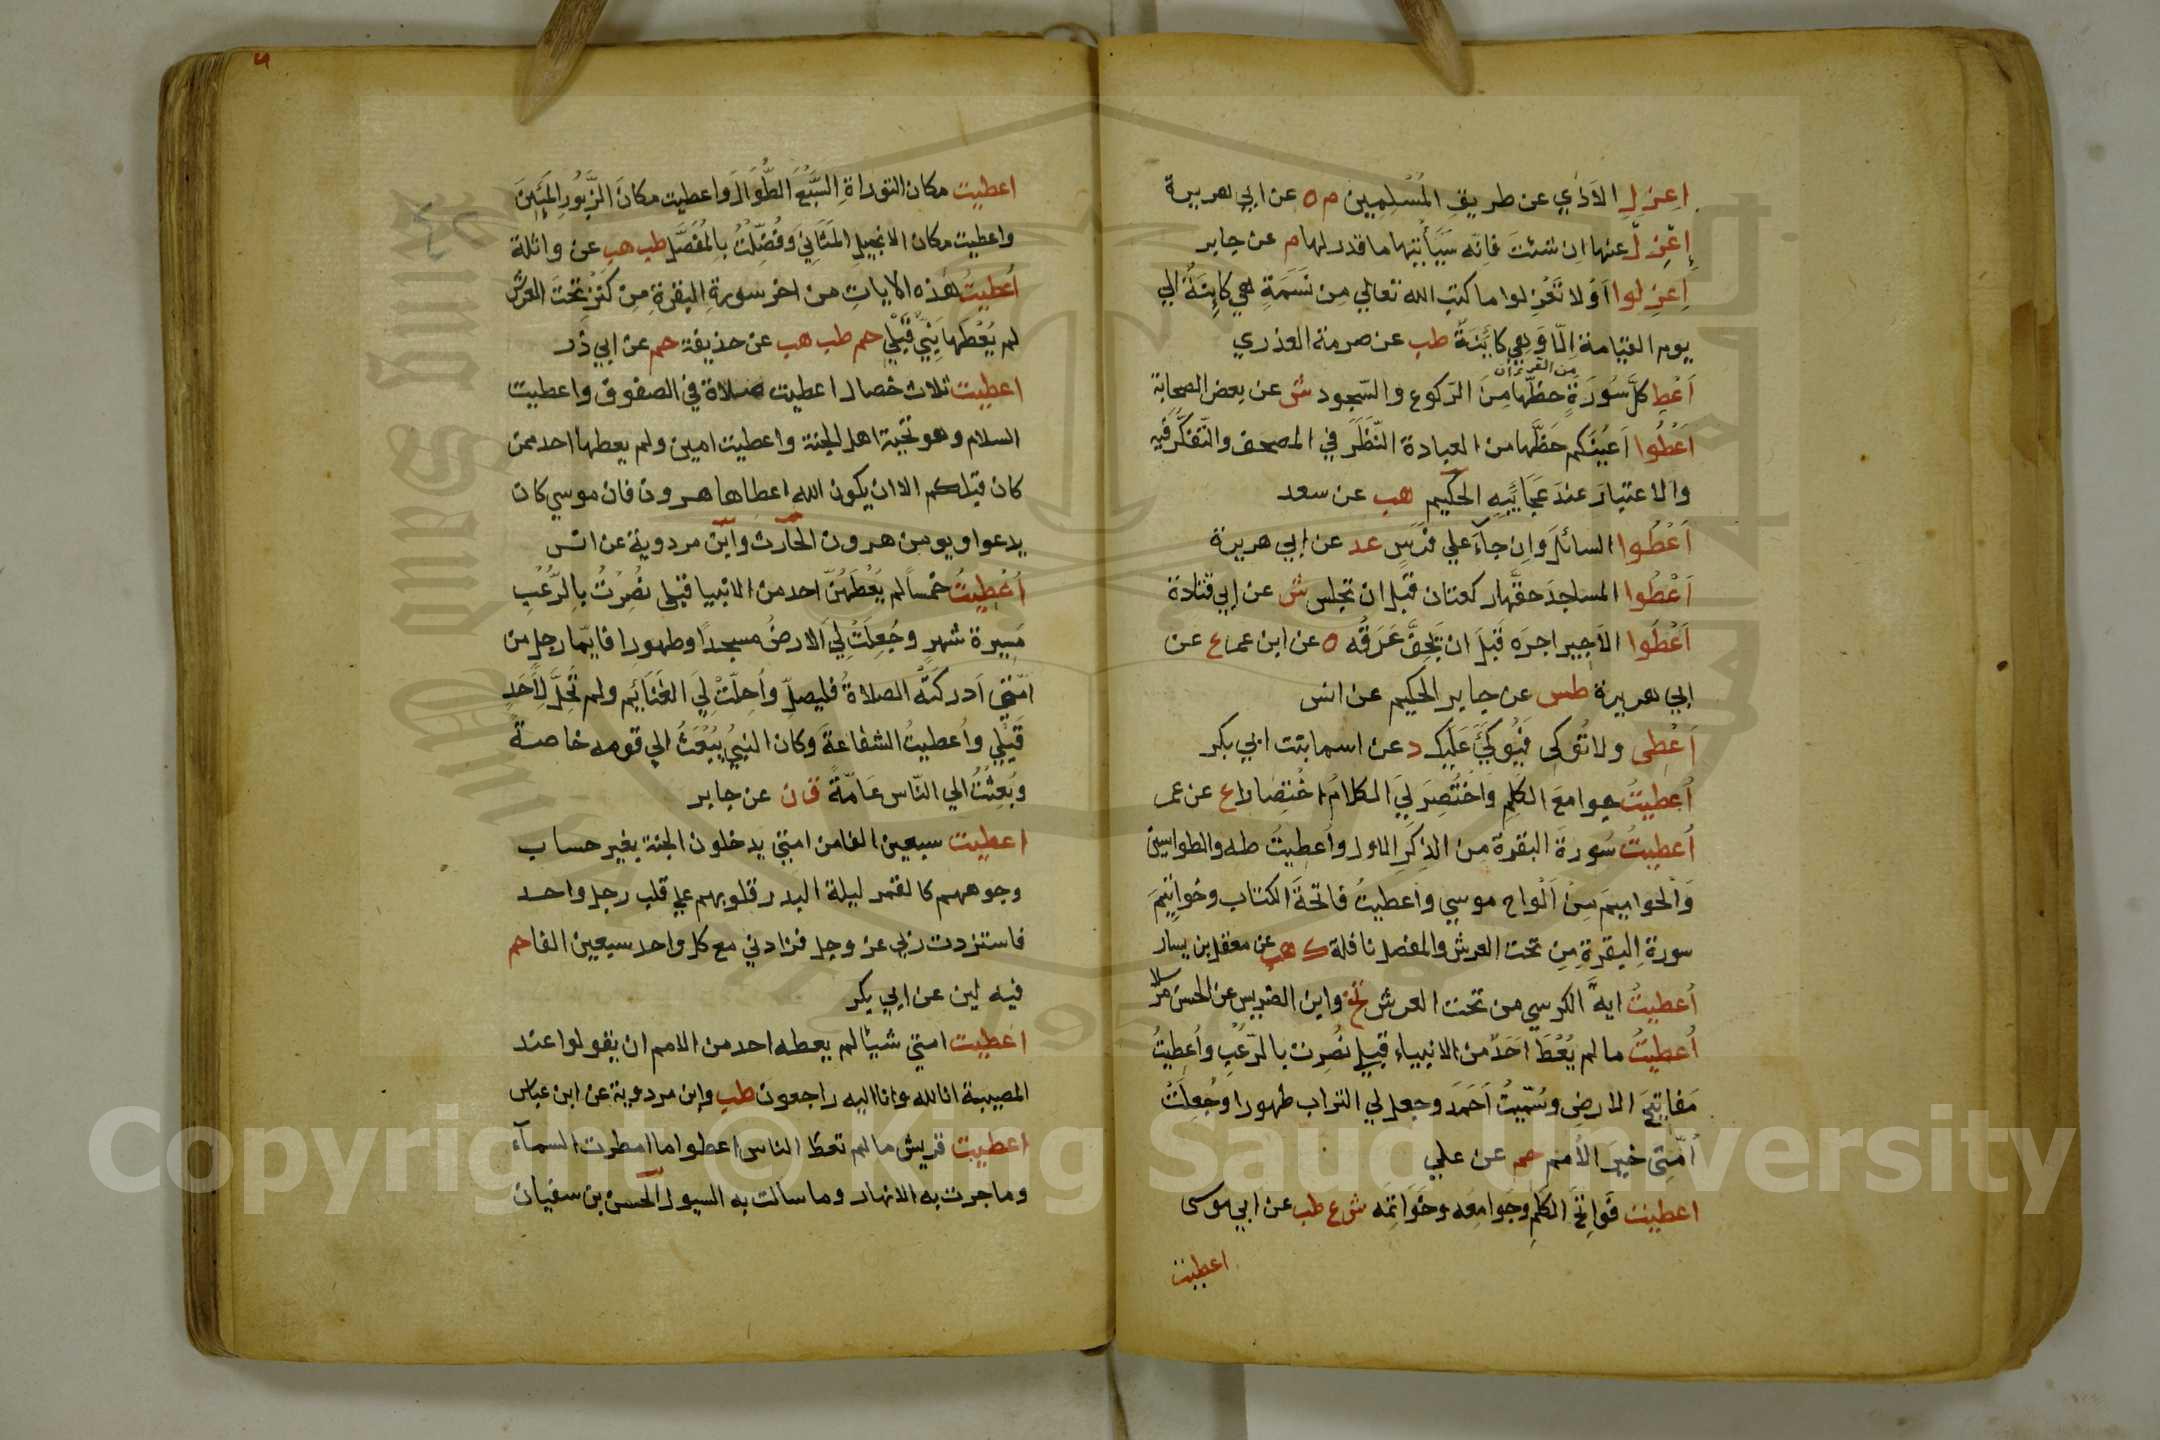 اِعزِلِ الاَذَي عن طريقِ المُسْلمين م ه عن ابي هريرة
اِعْزِلْ عنها ان شئتَ فانه سَيَأتيها ما قدر لها م عن جابر
اِعزِلوا اَوْ لا تَعْزِلوا ما كتب الله تعالي مِن نَسَمَةٍ هي كاينَةٌ الي
يوم القيامة اِلّا وَهِي كائنةٌ طب عن صرمة العذري
اَعْطِ كلَّ سُورَةٍ حظّها مِنَ الرّكوع والسّجود ش عن بعض الصحابة
من القرءان
اَعْطُوا اَعيُنَكم حَظَّها من العبادة النّظَرَ في المصحف والتّفكّر فيه
والاعتبارَ عندَ عَجَائبِهِ الحكيم هب عن سعد
اَعْطُوا السائلَ وَاِن جآءَ علي فَرَسٍ عد عن ابي هريرة
اَعْطُوا المساجدَ حقّها ركعتان قبل ان تجلس ش عن ابي قتادة
اَعْطُوا الاَجير اجرَه قَبلَ ان يَجِفَّ عَرَقُه ه عن ابن عمر ع عن
ابي هريرة طس عن جابر الحكيم عن انس
اَعْطِى ولا تُوكِى فَيُوكَيَ عَلَيكِ د عن اسما بنت ابي بكر
اُعطِيتُ جوامعَ الكَلِمِ وَاخْتُصِرَ لِيَ الكلامُ اخْتِصارًا ع عن عمر
اُعطِيتُ سُورةَ البقرة من الذِكرِ الاول واُعطِيتُ طه والطواسين
وَالحواميمَ مِنْ اَلْواح موسي واعطيتُ فاتحةَ الكتاب وخواتيمَ
سورةِ البقرةِ مِن تحت العرش والمفصل نافلة ك هب عن معقل بن يسار
اُعطِيتُ ايةَ الكرسي من تحت العرش تخ وابن الضريس عن الحسن مرسلا
اُعطِيتُ ما لم يُعْطَ اَحَدٌ من الانبياء قبلي نُصِرت بالرّعْبِ واُعطِيتُ
مَفاتِيحَ الارضِ وسُمّيتُ اَحمَدَ وجعل لي التراب طهورا وجُعِلَتْ
اُمّتِى خَيرَ الاُمَم حم عن علي
اعطيت فَواتِحَ الكَلِمِ وجَوامِعَه وخَوَاتِمَه ش ع طب عن ابي موسى
اعطيت
اعطيت مكان التوراةِ السَّبْعَ الطُّوَالَ واعطيت مكانَ الزَّبُورِ المِئِينَ
واعطيت مكان الانجيلِ المَثَانِي وَفُضِّلْتُ بالمُفَصَّل طب هب عن واثلة
اُعطِيتُ هَذه الايات من اخر سورةِ البقرةِ مِن كَنْزٍ تحتَ العرش
لم يُعْطَها نَبيٌّ قَبْلِي حم طب هب عن حذيفة حم عن ابي ذر
اعطِيت ثلاث خصال اعطيت صلاة في الصفوف واعطيت
السلام وهو تحية اهل الجنة واعطيت امين ولم يعطها احد ممن
كان قبلكم الا ان يكون الله اعطاها هرون فان موسي كان
يدعوا ويومن هرون الحارث وابن مردوية عن انس
اُعْطِيتُ خَمْسًا لم يُعْطَهُنّ احد من الانبيا قبلي نُصِرْتُ بالرّعْبِ
مَسِيرة شهرٍ وجُعِلَتْ لِيَ الارضُ مسجدًا وطهورا فايّما رجل من
امّتي اَدركَتْه الصلاةُ فليصلّ واُحِلّتْ لِيَ الغَنَايَم ولم تُحِلَّ لِاَحَدٍ
قَبْلِي واُعطيتُ الشفاعةَ وَكان النبيّ يُبْعَثُ الي قومه خاصةً
وبُعِثْتُ الي النّاس عَامّةً ق ن عن جابر
اعطِيت سبعين الفا من امتي يدخلون الجنة بغير حساب
وجوههم كالقمر ليلة البدر قلوبهم علي قلب رجل واحد
فاستزدت ربي عز وجل فزادني مع كل واحد سبعين الفا حم
فيه لين عن ابي بكر
اعطِيت امتي شيئا لم يعطه احد من الامم ان يقولوا عند
المصيبة انا لله وانا اليه راجعون طب وابن مردوية عن ابن عباس
اعطيت قريش ما لم تعط الناس اعطوا ما امطرت السمآء
وما جرت به الانهار وما سالت به السيول الحسن بن سفيان
Copyright © King Saud University